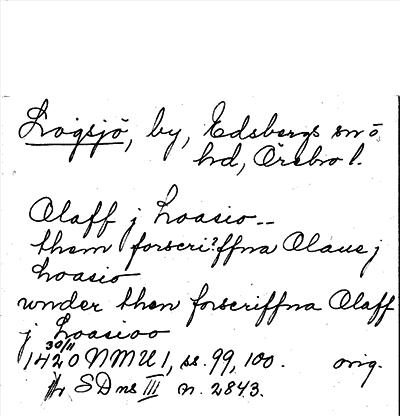 Logsjö, by, Edsbergs sn ō
hd, Örebro l.
Olaff j Loasio --
them forscri?ffna Olaue j
Loasio
wnder then forscriffna Olaff
j Loasioo
30/11
1420 NMU 1, ss. 99, 100. orig.
Tr SD ns III n. 2843.